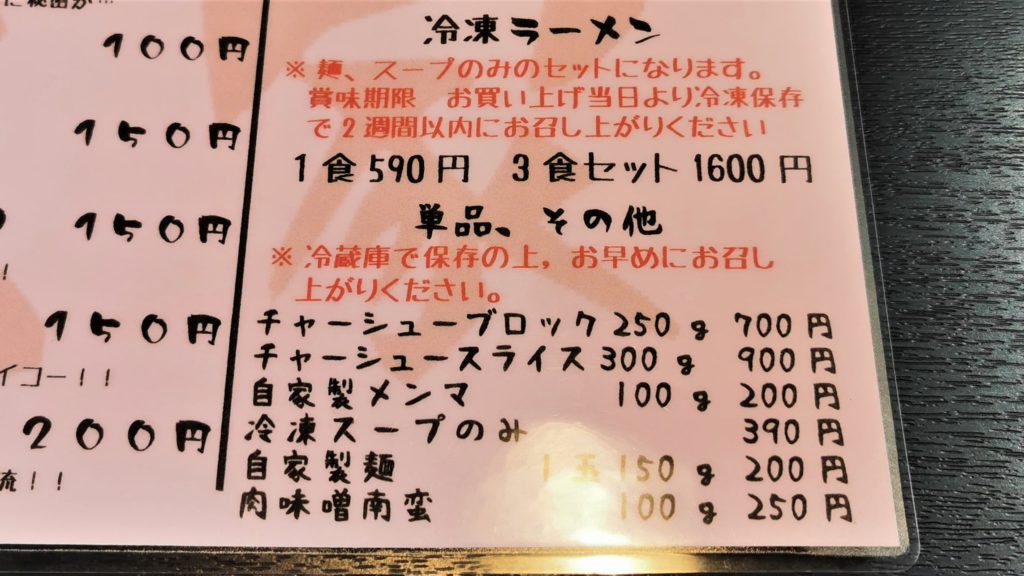 100円
150円
150円
！
150円
イコー！！
200円
流！！
冷凍ラーメン
※麺、スープのみのセットになります。
賞味期限　お買い上げ当日より冷凍保存
で2週間以内にお召し上がりください
1食590円　3食セット1600円
単品、その他
※冷蔵庫で保存の上，お早めにお召し
上がりください。
チャーシューブロック 250g 700円
チャーシュースライス 300g 900円
自家製メンマ 100g 200円
冷凍スープのみ 390円
自家製麺 1玉150g 200円
肉味噌南蛮 100g 250円